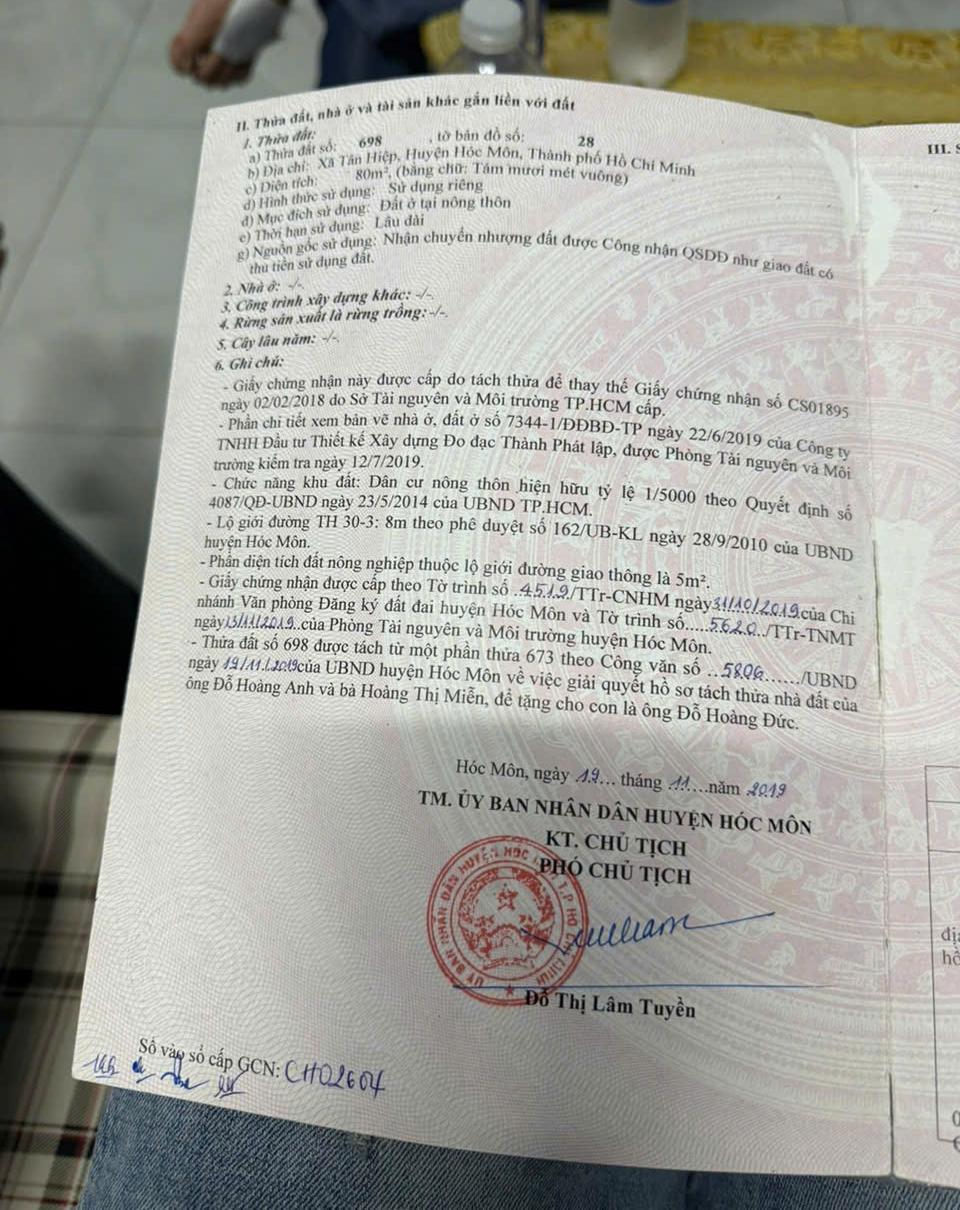 II. Thửa đất, nhà ở và tài sản khác gắn liền với đất
1. Thửa đất:
a) Thửa đất số: 698 , tờ bản đồ số: 28
b) Địa chỉ: Xã Tân Hiệp, Huyện Hóc Môn, Thành phố Hồ Chí Minh
c) Diện tích: 80m², (bằng chữ: Tám mươi mét vuông)
d) Hình thức sử dụng: Sử dụng riêng
đ) Mục đích sử dụng: Đất ở tại nông thôn
e) Thời hạn sử dụng: Lâu dài
g) Nguồn gốc sử dụng: Nhận chuyển nhượng đất được Công nhận QSDĐ như giao đất có
thu tiền sử dụng đất.
2. Nhà ở: -/-.
3. Công trình xây dựng khác: -/-.
4. Rừng sản xuất là rừng trồng: -/-.
5. Cây lâu năm: -/-.
6. Ghi chú:
- Giấy chứng nhận này được cấp do tách thửa để thay thế Giấy chứng nhận số CS01895
ngày 02/02/2018 do Sở Tài nguyên và Môi trường TP.HCM cấp.
- Phần chi tiết xem bản vẽ nhà ở, đất ở số 7344-1/ĐĐBĐ-TP ngày 22/6/2019 của Công ty
TNHH Đầu tư Thiết kế Xây dựng Đo đạc Thành Phát lập, được Phòng Tài nguyên và Môi
trường kiểm tra ngày 12/7/2019.
- Chức năng khu đất: Dân cư nông thôn hiện hữu tỷ lệ 1/5000 theo Quyết định số
4087/QĐ-UBND ngày 23/5/2014 của UBND TP.HCM.
- Lộ giới đường TH 30-3: 8m theo phê duyệt số 162/UB-KL ngày 28/9/2010 của UBND
huyện Hóc Môn.
- Phần diện tích đất nông nghiệp thuộc lộ giới đường giao thông là 5m².
- Giấy chứng nhận được cấp theo Tờ trình số .4519./TTr-CNHM ngày 31/10/2019 của Chi
nhánh Văn phòng Đăng ký đất đai huyện Hóc Môn và Tờ trình số.....5620../TTr-TNMT
ngày 13/11/2019..của Phòng Tài nguyên và Môi trường huyện Hóc Môn.
- Thửa đất số 698 được tách từ một phần thửa 673 theo Công văn số ...5806....../UBND
ngày 19/11/2019 của UBND huyện Hóc Môn về việc giải quyết hồ sơ tách thửa nhà đất của
ông Đỗ Hoàng Anh và bà Hoàng Thị Miễn, để tặng cho con là ông Đỗ Hoàng Đức.
Hóc Môn, ngày .19... tháng .11....năm 2019
TM. ỦY BAN NHÂN DÂN HUYỆN HÓC MÔN
KT. CHỦ TỊCH
PHÓ CHỦ TỊCH
ỦY BAN NHÂN DÂN HUYỆN HÓC MÔN T.P HỒ CHÍ MINH
Đỗ Thị Lâm Tuyền
Số vào sổ cấp GCN: CH02604
III. S